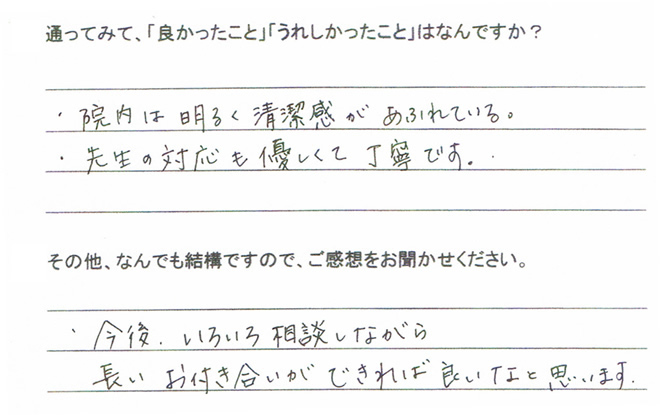 通ってみて、「良かったこと」「うれしかったこと」はなんですか？
・院内は明るく清潔感があふれている。
・先生の対応も優しくて丁寧です。
その他、なんでも結構ですので、ご感想をお聞かせください。
・今後、いろいろ相談しながら
長いお付き合いができれば良いなと思います.